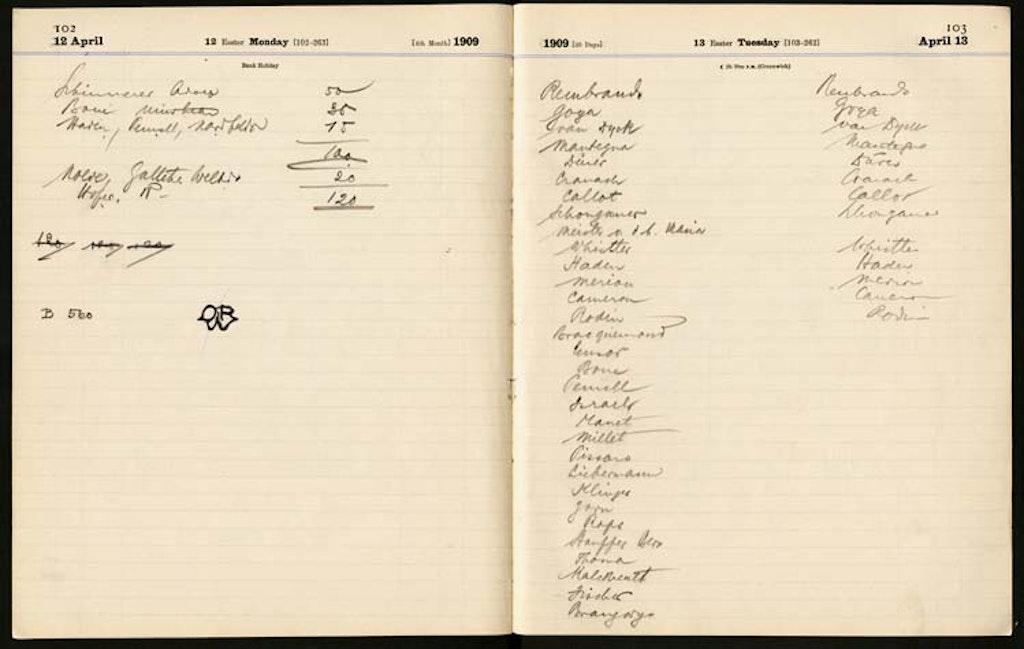 102
12 April
12 Easter Monday [102-263]
[4th Month] 1909
Bank Holiday
50
Bone
Haden, Pennell,
15
100
Nolde, Gallette
20
120
120 120 120
B 560
103
1909 [30 Days]
13 Easter Tuesday [103-262]
April 13
Rembrandt
Goya
van Dyck
Mantegna
Dürer
Cranach
Callot
Schongauer
Meister v. d. h. Maria
Whistler
Haden
Merion
Cameron
Rodin
Bracquemond
Ensor
Bone
Pennell
Israels
Manet
Millet
Pissaro
Liebermann
Klinger
Zorn
Rops
Stauffer Bern
Thoma
Kalckreuth
Fischer
Brangwyn
Rembrandt
Goya
van Dyck
Mantegna
Dürer
Cranach
Callot
Schongauer
Whistler
Haden
Merion
Cameron
Rodin